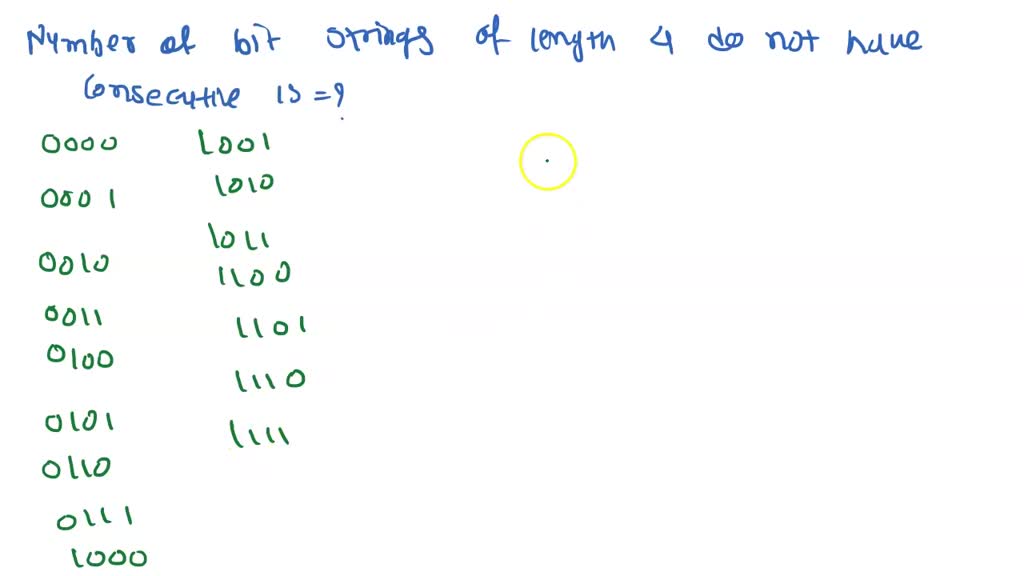 Number of bit strings of length 4 do not have
Consecutive 1s = ?
0000
0001
0010
0011
0100
0101
0110
0111
1000
1001
1010
1011
1100
1101
1110
1111